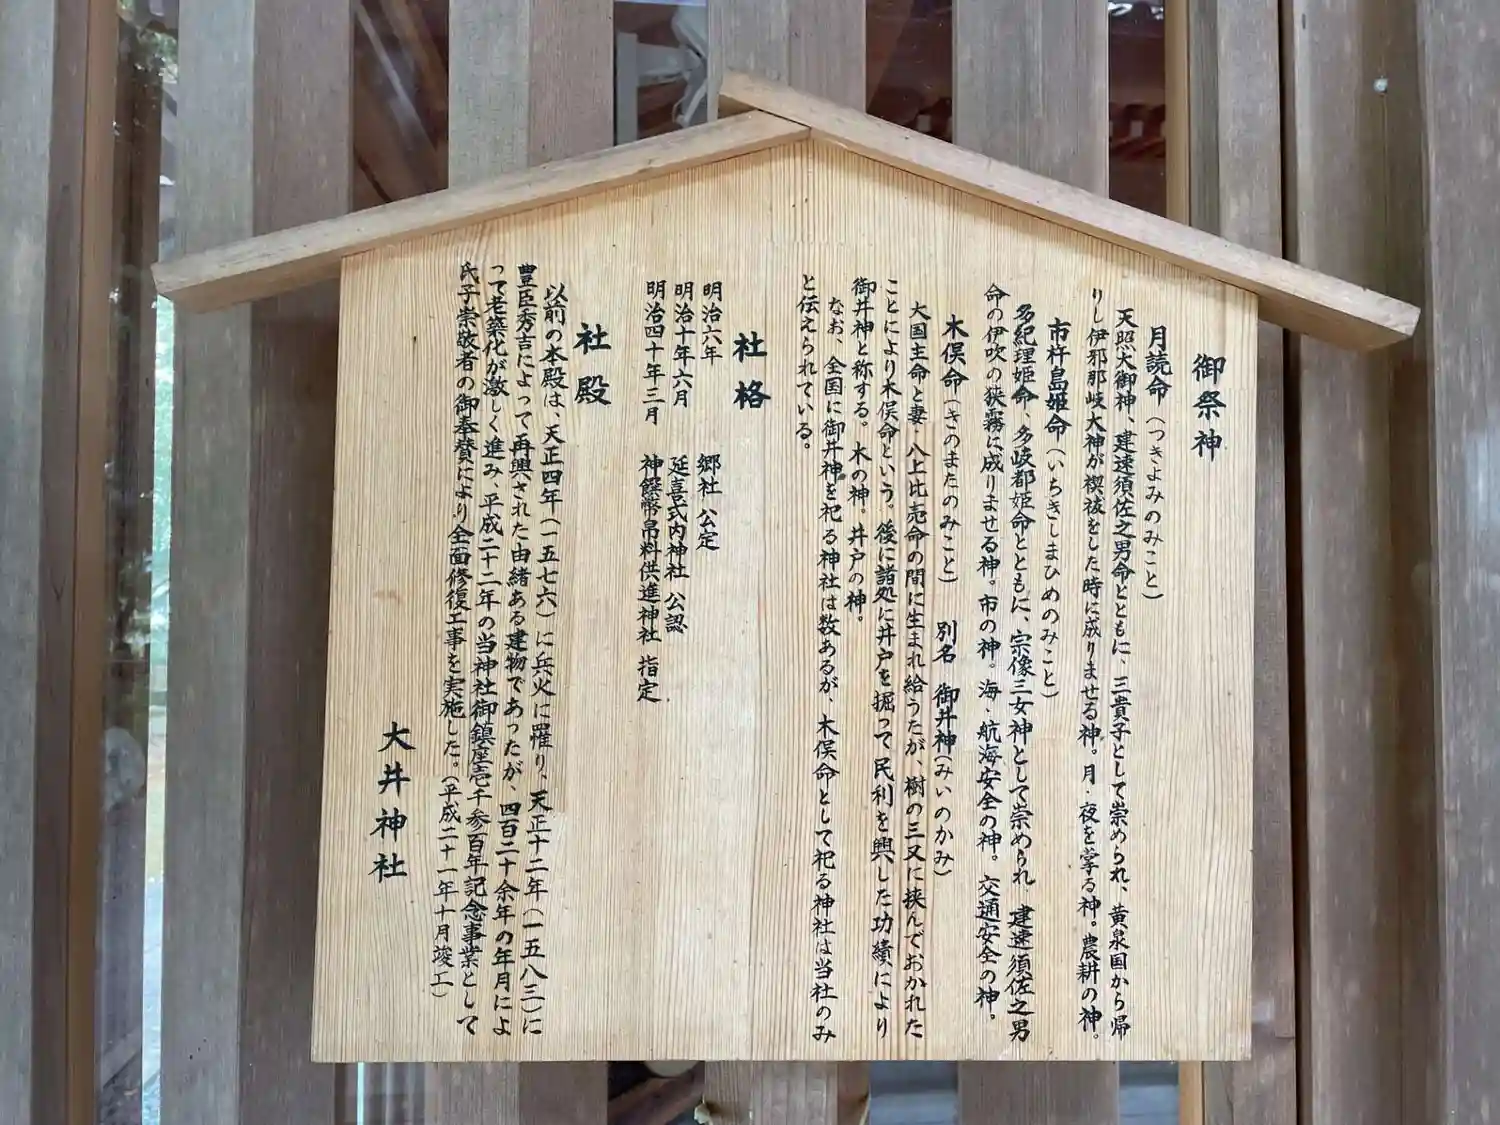 御祭神
月読命（つきよみのみこと）
天照大御神、建速須佐之男命とともに、三貴子として崇められ、黄泉国から帰
りし伊邪那岐大神が禊祓をした時に成りませる神。月・夜を掌る神。農耕の神。
市杵島姫命（いちきしまひめのみこと）
多紀理姫命、多岐都姫命とともに、宗像三女神として崇められ、建速須佐之男
命の伊吹の狭霧に成りませる神。市の神。海・航海安全の神。交通安全の神。
木俣命（きのまたのみこと）　別名　御井神（みいのかみ）
大国主命と妻・八上比売命の間に生まれ給うたが、樹の三又に挟んでおかれた
ことにより木俣命という。後に諸処に井戸を掘って民利を興した功績により
御井神と称する。木の神。井戸の神。
なお、全国に御井神を祀る神社は数あるが、木俣命として祀る神社は当社のみ
と伝えられている。
社格
明治六年　郷社 公定
明治十年六月　延喜式内神社 公認
明治四十年三月　神饌幣帛料供進神社 指定
社殿
以前の本殿は、天正四年（一五七六）に兵火に罹り、天正十二年（一五八三）に
豊臣秀吉によって再興された由緒ある建物であったが、四百二十余年の年月によ
って老築化が激しく進み、平成二十二年の当神社御鎮座壱千参百年記念事業として
氏子崇敬者の御奉賛により全面修復工事を実施した。（平成二十一年十月竣工）
大井神社